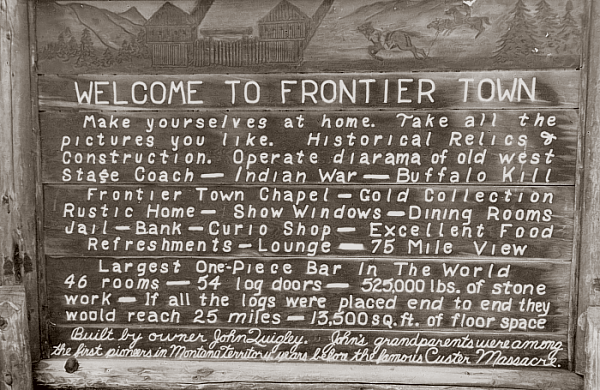 WELCOME TO FRONTIER TOWN
Make yourselves at home. Take all the
pictures you like. Historical Relics &
Construction. Operate diarama of old west
Stage Coach — Indian War — Buffalo Kill
Frontier Town Chapel — Gold Collection
Rustic Home — Show Windows — Dining Rooms
Jail — Bank — Curio Shop — Excellent Food
Refreshments — Lounge — 75 Mile View
Largest One-Piece Bar In The World
46 rooms — 54 log doors — 525,000 lbs. of stone
work — If all the logs were placed end to end they
would reach 25 miles — 13,500 sq. ft. of floor space
Built by owner John Quigley. John's grandparents were among
the first pioneers in Montana Territory, years before the famous Custer Massacre.